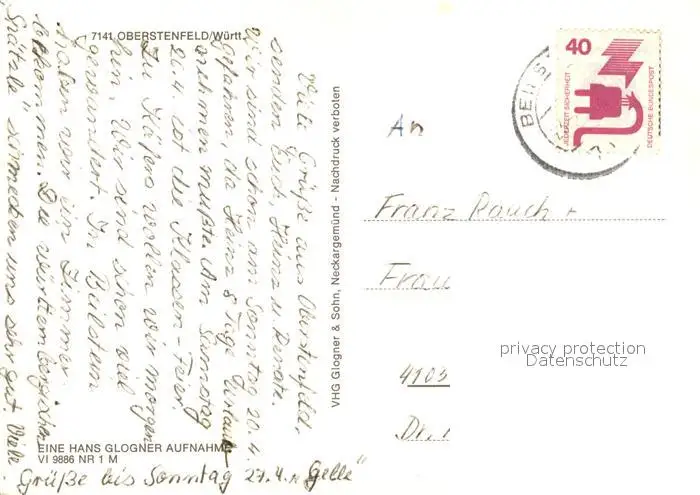 7141 OBERSTENFELD/Württ.
Viele Grüße aus Oberstenfeld,
senden Euch, Heinz u. Renate.
Wir sind schon am Sonntag 20.4.
gefahren da Heinz 8 Tage Urlaub
nehmen mußte. Am Samstag
26.4 ist die Klassen-Feier.
Zu Käfers wollen wir morgen
hin. Wir sind schon viel
gewandert. In Beilstein
haben wir ein Zimmer
bekommen. Die württembergischen
"Spätzle" schmecken uns sehr gut. Viele
Grüße bis Sonntag 27.4. "Gelle"
EINE HANS GLOGNER AUFNAHME
VI 9886 NR 1 M
VHG Glogner & Sohn, Neckargemünd - Nachdruck verboten
40
JEDERZEIT SICHERHEIT
DEUTSCHE BUNDESPOST
BEILS
An
Franz Rauch +
Frau
4103
Dr.
privacy protection
Datenschutz